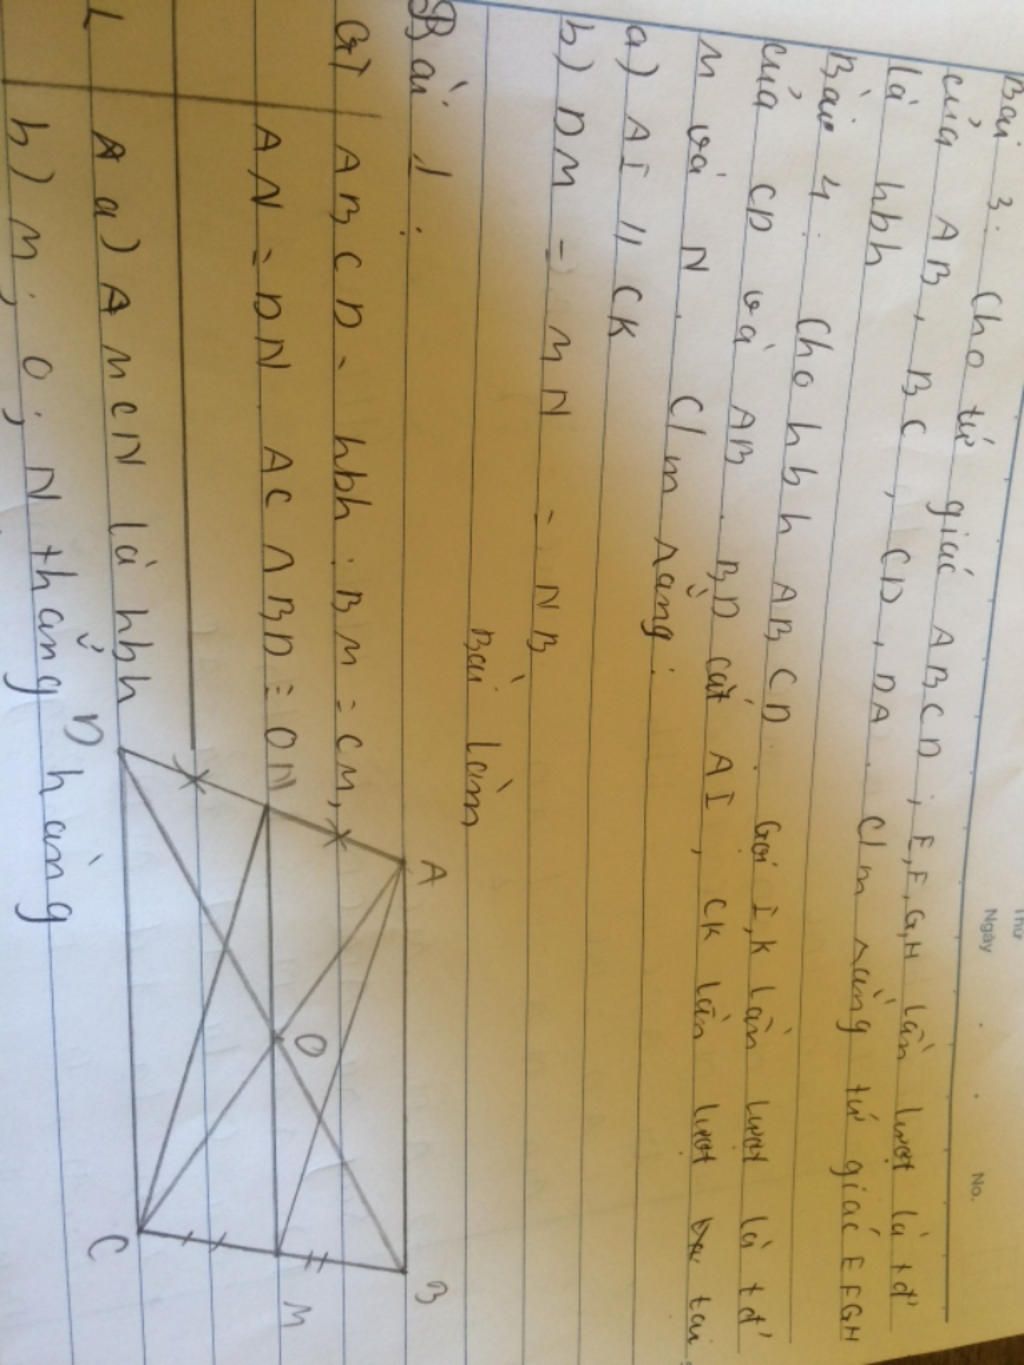 Thứ
Ngày
No.
Bài 3: Cho tứ giác ABCD; E,F,G,H lần lượt là tđ
của AB, BC, CD, DA. C/m rằng tứ giác EFGH
là hbh
Bài 4: Cho hbh ABCD. Gọi I,K lần lượt là tđ
của CD và AB. BD cắt AI, CK lần lượt tại
M và N. C/m rằng:
a) AI // CK
b) DM = MN = NB
Bài làm
Bài 1:
GT ABCD - hbh: BM = CM,
AN = DN. AC ∩ BD = O
L A a) AMCN là hbh
b) M; O; N thẳng hàng
A
B
C
D
N
M
O